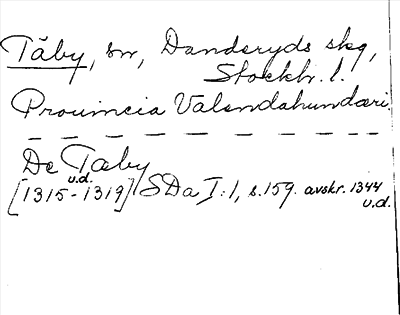 Täby, sn, Danderyds skg,
Stockh. l.
Prouincia Valendahundæri.
De Tæby
u.d.
[1315-1319] SDa I:1, s.159. avskr. 1344
u.d.